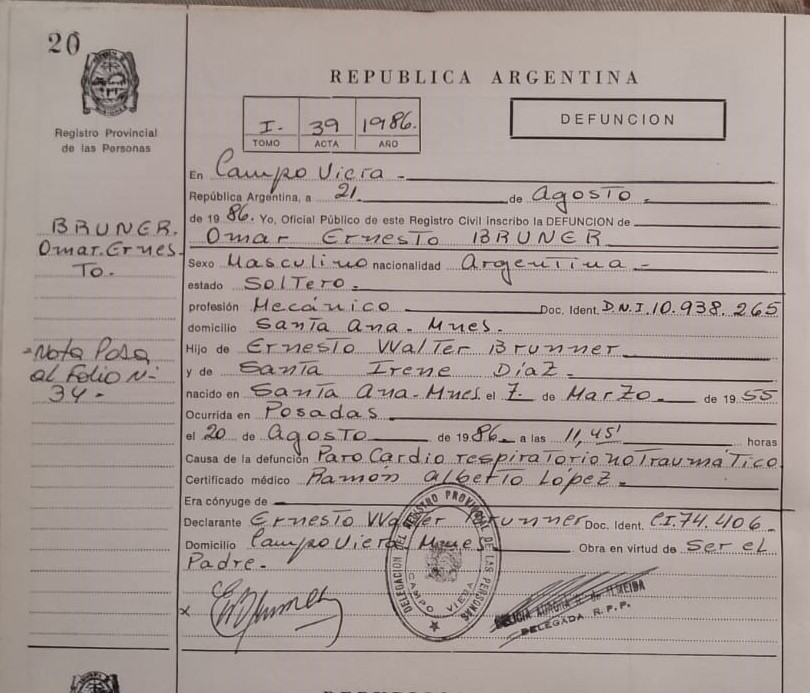 20
Registro Provincial
de las Personas
REPUBLICA ARGENTINA
I. 39 1986.
TOMO ACTA AÑO
DEFUNCION
En Campo Viera -
República Argentina, a 21. de agosto.
de 19 86. Yo, Oficial Público de este Registro Civil inscribo la DEFUNCION de
Omar Ernesto BRUNER
Sexo Masculino nacionalidad Argentina -
estado Soltero.
profesión Mecánico Doc. Ident. D.N.I. 10.938.265
domicilio Santa Ana - Mnes.
Hijo de Ernesto Walter Brunner
y de Santa Irene Díaz -
nacido en Santa Ana - Mnes el 7. de Marzo. de 19 55
Ocurrida en Posadas
el 20 de agosto de 19 86 a las 11,45' horas
Causa de la defunción Paro Cardio respiratorio no Traumático
Certificado médico Ramón Alberto López -
Era cónyuge de
Declarante Ernesto Walter Brunner Doc. Ident. CI. 74.406 -
Domicilio Campo Viera Mnes Obra en virtud de ser el
Padre.
BRUNER.
Omar Ernes
To.
-Nota Pasa
al Folio N-
34-
x
DELEGACION DEL REGISTRO PROVINCIAL DE LAS PERSONAS
CAMPO VIERA
AURORA ALMEIDA
DELEGADA R.P.P.